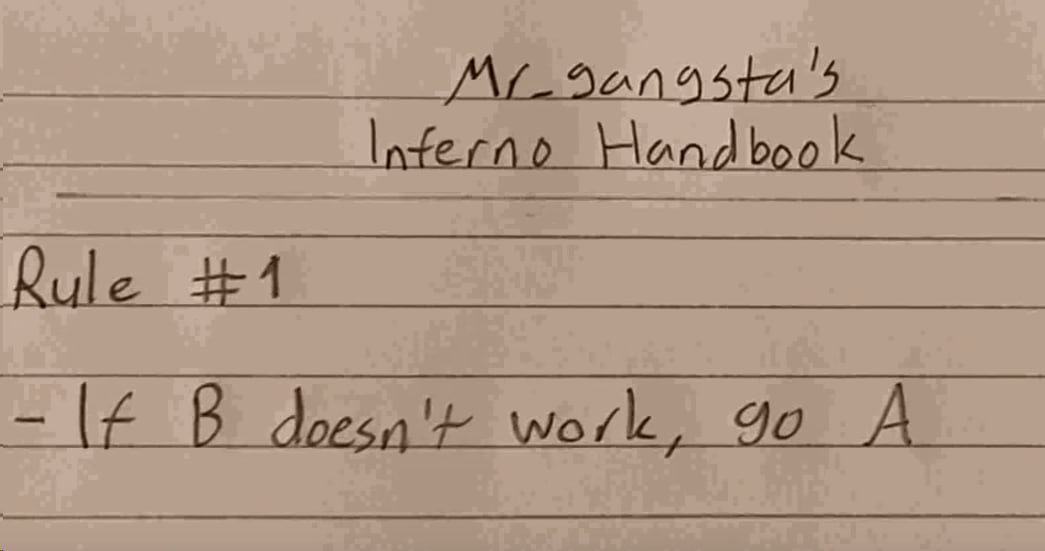 Mr_gangsta's
Inferno Handbook
Rule #1
- If B doesn't work, go A